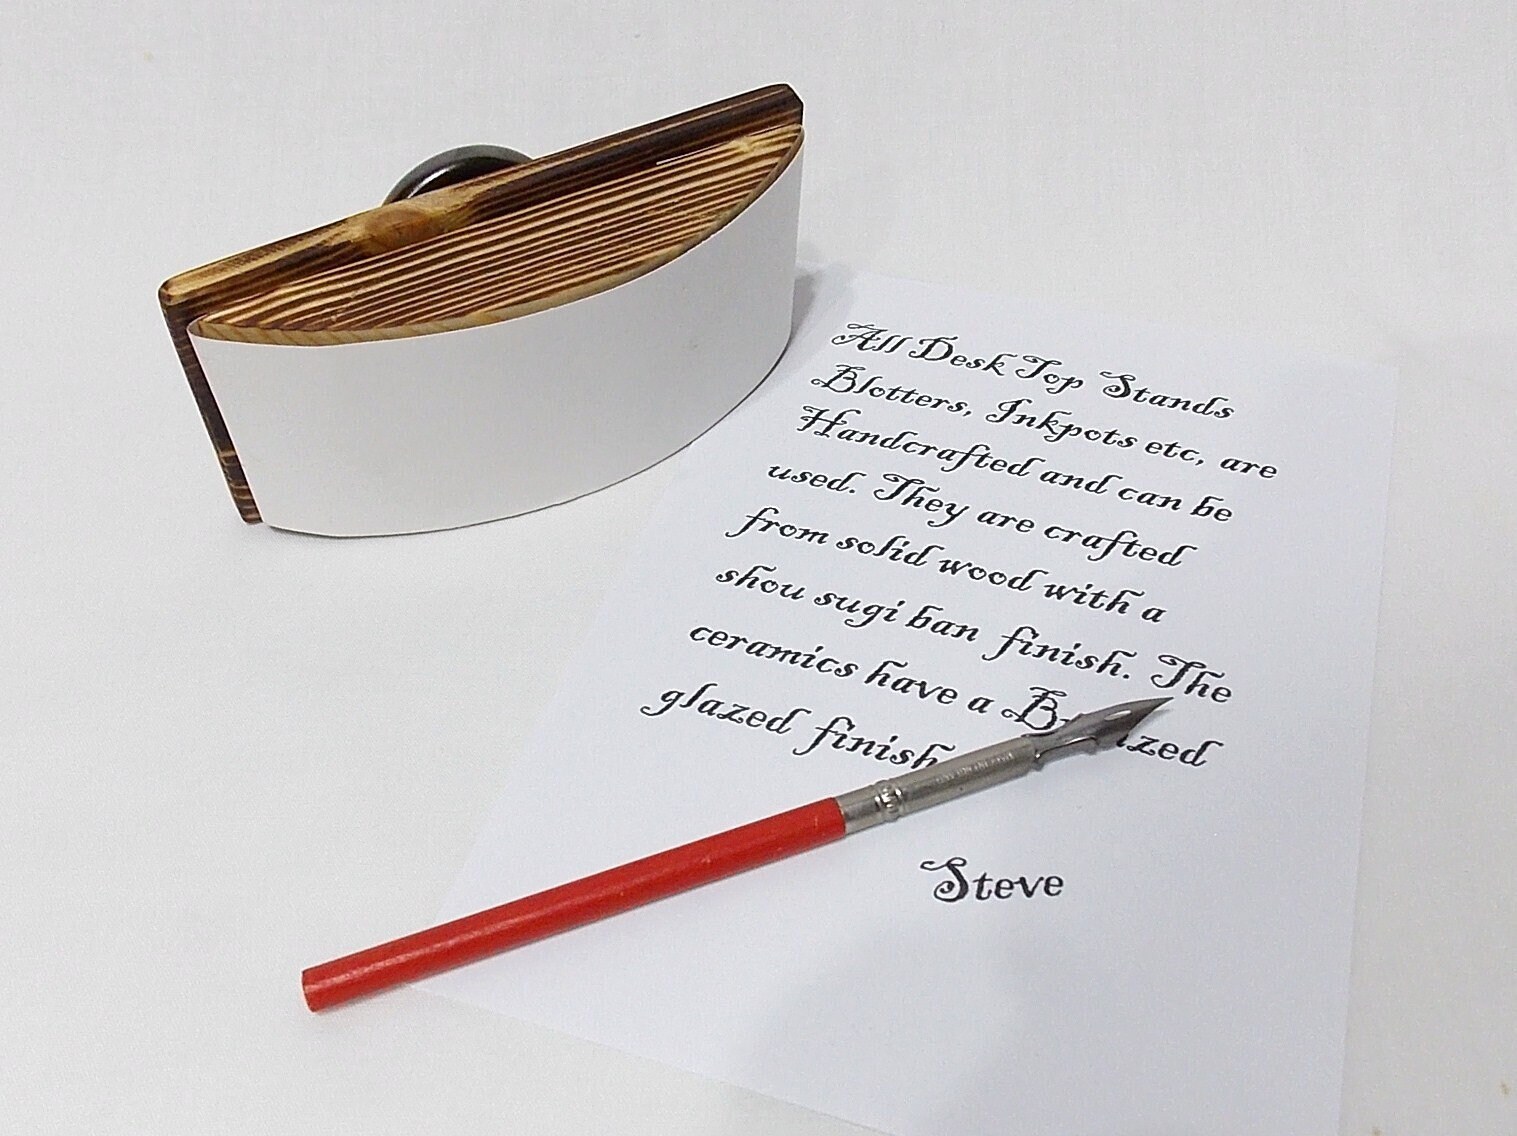 All Desk Top Stands
Blotters, Inkpots etc, are
Handcrafted and can be
used. They are crafted
from solid wood with a
shou sugi ban finish. The
ceramics have a
glazed finish
Steve